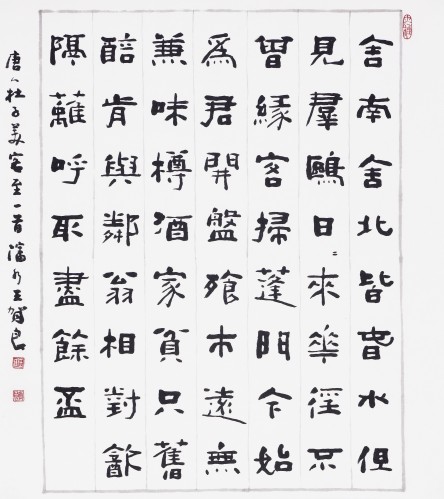 舍南舍北皆春水但
見羣鷗日〻來華徑不
曾緣客掃蓬門今始
爲君開盤飧市遠無
兼味樽酒家貧只舊
醅肯與鄰翁相對飲
隔蘺呼取盡餘盃
唐人杜子美客至一首